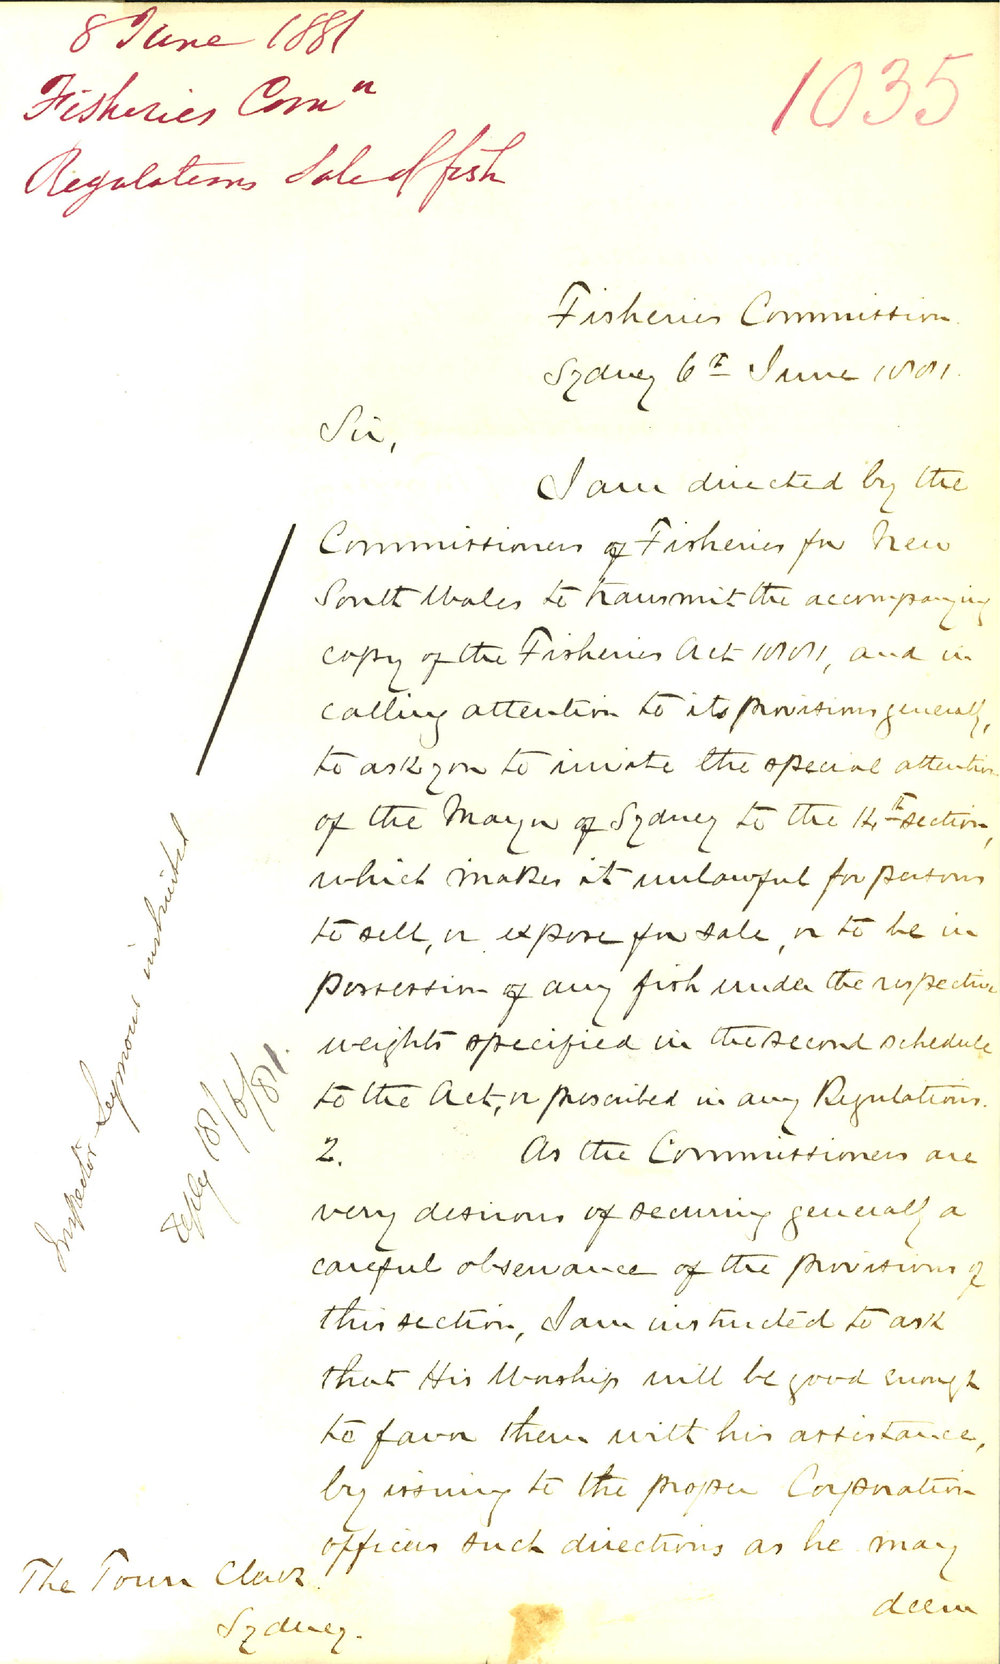 8 June 1881
Fisheries Comn
Regulations Sale of fish
1035
Fisheries Commission
Sydney 6th June 1881.
Sir,
I am directed by the
Commissioners of Fisheries for New
South Wales to transmit the accompanying
copy of the Fisheries Act 1881, and in
calling attention to its provisions generally,
to ask you to invite the special attention
of the Mayor of Sydney to the 14th section,
which makes it unlawful for persons
to sell, or expose for sale, or to be in
possession of any fish under the respective
weights specified in the second schedule
to the Act, or prescribed in any Regulations.
2. As the Commissioners are
very desirous of securing generally a
careful observance of the provisions of
this section, I am instructed to ask
that His Worship will be good enough
to favor them with his assistance,
by issuing to the proper Corporation
officers such directions as he may
deem
The Town Clerk
Sydney.
Inspector Seymour instructed
Reply 18/6/81.